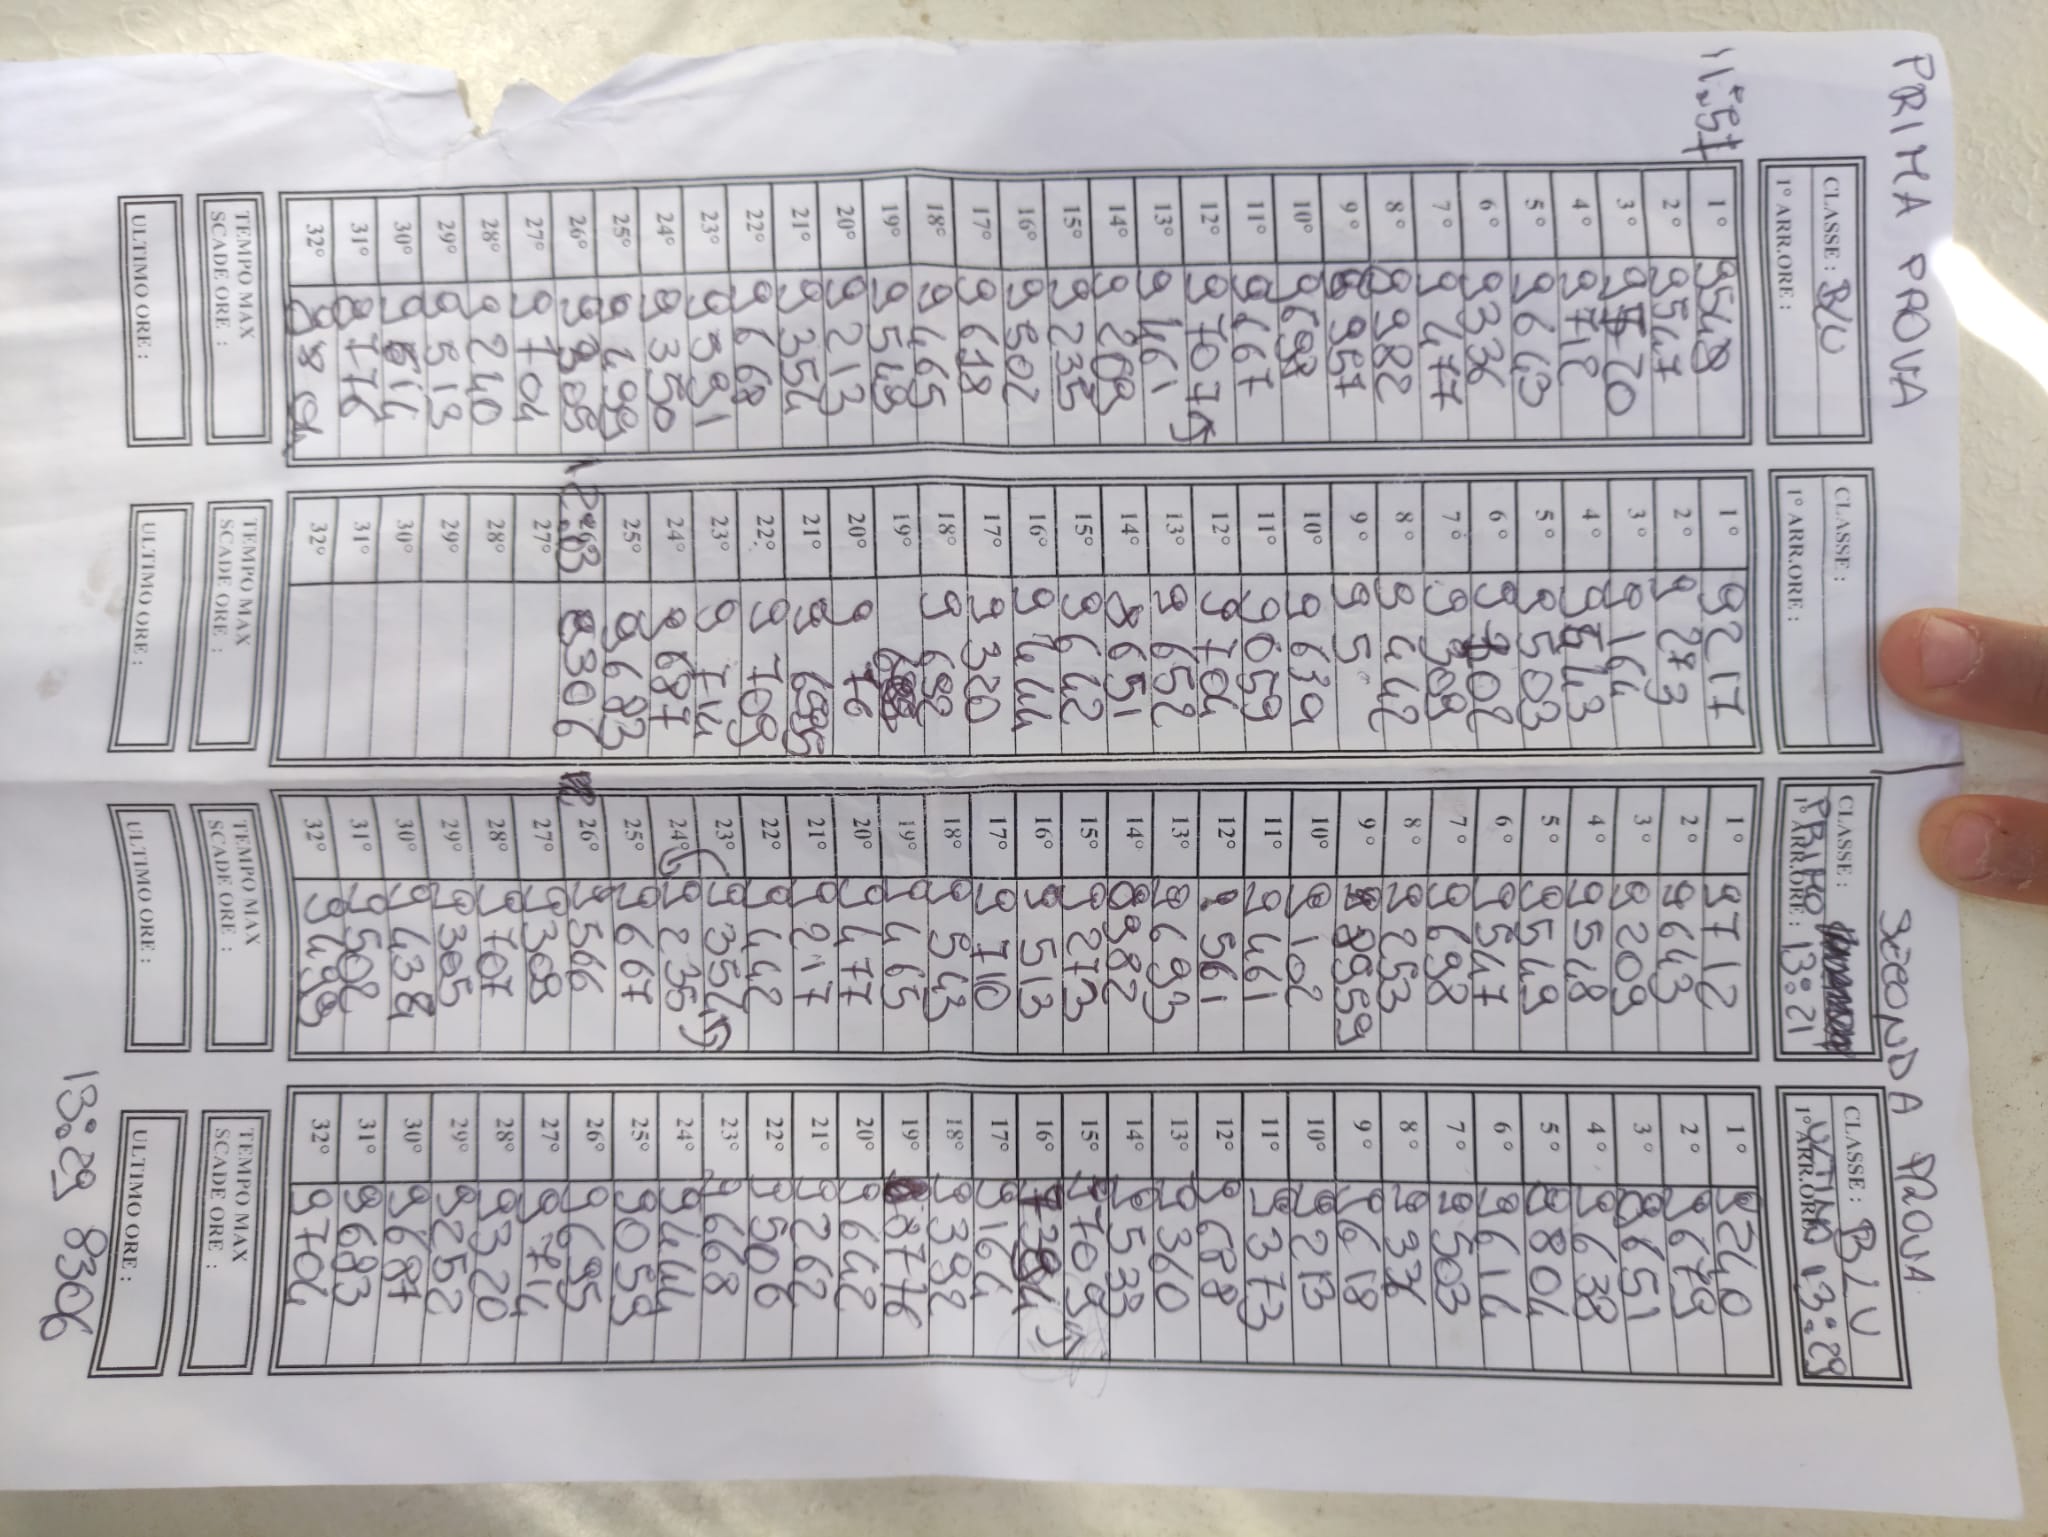 PRIMA PROVA
11:57
CLASSE: BLU
1° ARR.ORE:
1° 9548
2° 9547
3°
4° 9712
5° 9643
6° 9336
7° 9477
8° 9982
9°
10° 9698
11° 9667
12° 9707
13° 9461
14° 9209
15° 9235
16° 9502
17° 9618
18° 9465
19° 9549
20° 9213
21° 9354
22° 9668
23° 9591
24° 9350
25° 9499
26°
27° 9704
28° 9240
29° 9513
30° 9614
31° 8776
32°
TEMPO MAX
SCADE ORE:
ULTIMO ORE:
CLASSE:
1° ARR.ORE:
1° 9217
2° 9273
3° 9164
4° 9543
5° 9503
6°
7° 9309
8° 9442
9° 95
10° 9639
11° 9059
12° 9704
13° 9652
14° 8651
15° 9642
16° 9444
17° 9320
18° 9692
19°
20° 9 76
21° 9695
22° 9709
23° 9714
24° 9687
25° 9683
26° 8306
12:03
27°
28°
29°
30°
31°
32°
TEMPO MAX
SCADE ORE:
ULTIMO ORE:
SECONDA PROVA
CLASSE:
PRIMO 13:21
1° ARR.ORE:
1° 9712
2° 9643
3° 9209
4° 9548
5° 9549
6° 9547
7° 9698
8° 9253
9°
10° 9102
11° 9461
12° 9561
13° 9693
14° 9982
15° 9273
16° 9513
17° 9710
18° 9543
19° 9465
20° 9477
21° 9217
22° 9442
23° 9354
24° 9235
25° 9667
26° 9566
27° 9309
28° 9707
29° 9305
30° 9438
31° 9502
32° 9499
TEMPO MAX
SCADE ORE:
ULTIMO ORE:
CLASSE: BLU
ULTIMO 13:29
1° ARR.ORE
1° 9240
2° 9679
3° 8651
4° 9638
5° 9804
6° 9614
7° 9503
8° 9336
9° 9618
10° 9213
11° 9373
12° 9688
13° 9360
14° 9533
15° 9709
16°
17° 9164
18° 9392
19° 8776
20° 9642
21° 9262
22° 9506
23° 9668
24° 9444
25° 9059
26° 9695
27° 9714
28° 9320
29° 9252
30° 9687
31° 9683
32° 9704
TEMPO MAX
SCADE ORE:
ULTIMO ORE:
13:29 8306